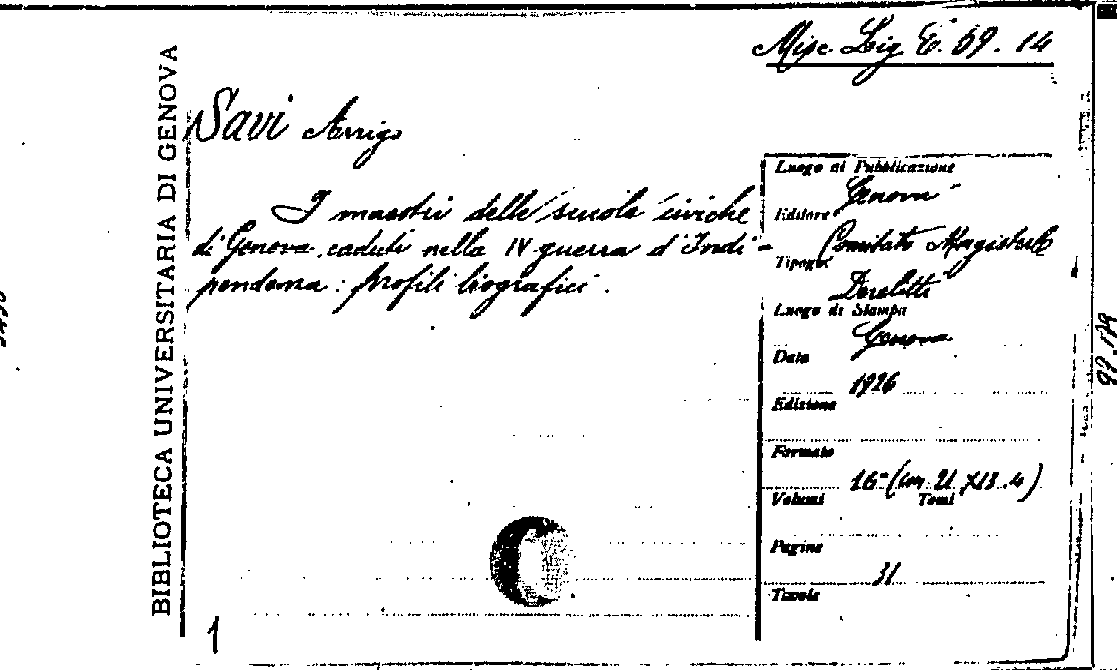 Misc. Lig. E. 69. 14
BIBLIOTECA UNIVERSITARIA DI GENOVA
Savi Arrigo
I maestri delle scuole civiche
di Genova caduti nella IV guerra d'Indi-
pendenza: profili biografici.
Luogo di Pubblicazione
Genova
Editore
Comitato Magistrale
Tipogr.
Luogo di Stampa
Genova
Data
1926
Edizione
Formato
16° (cm. 21 x 13.4)
Volumi Tomi
Pagine
31
Tavole
1